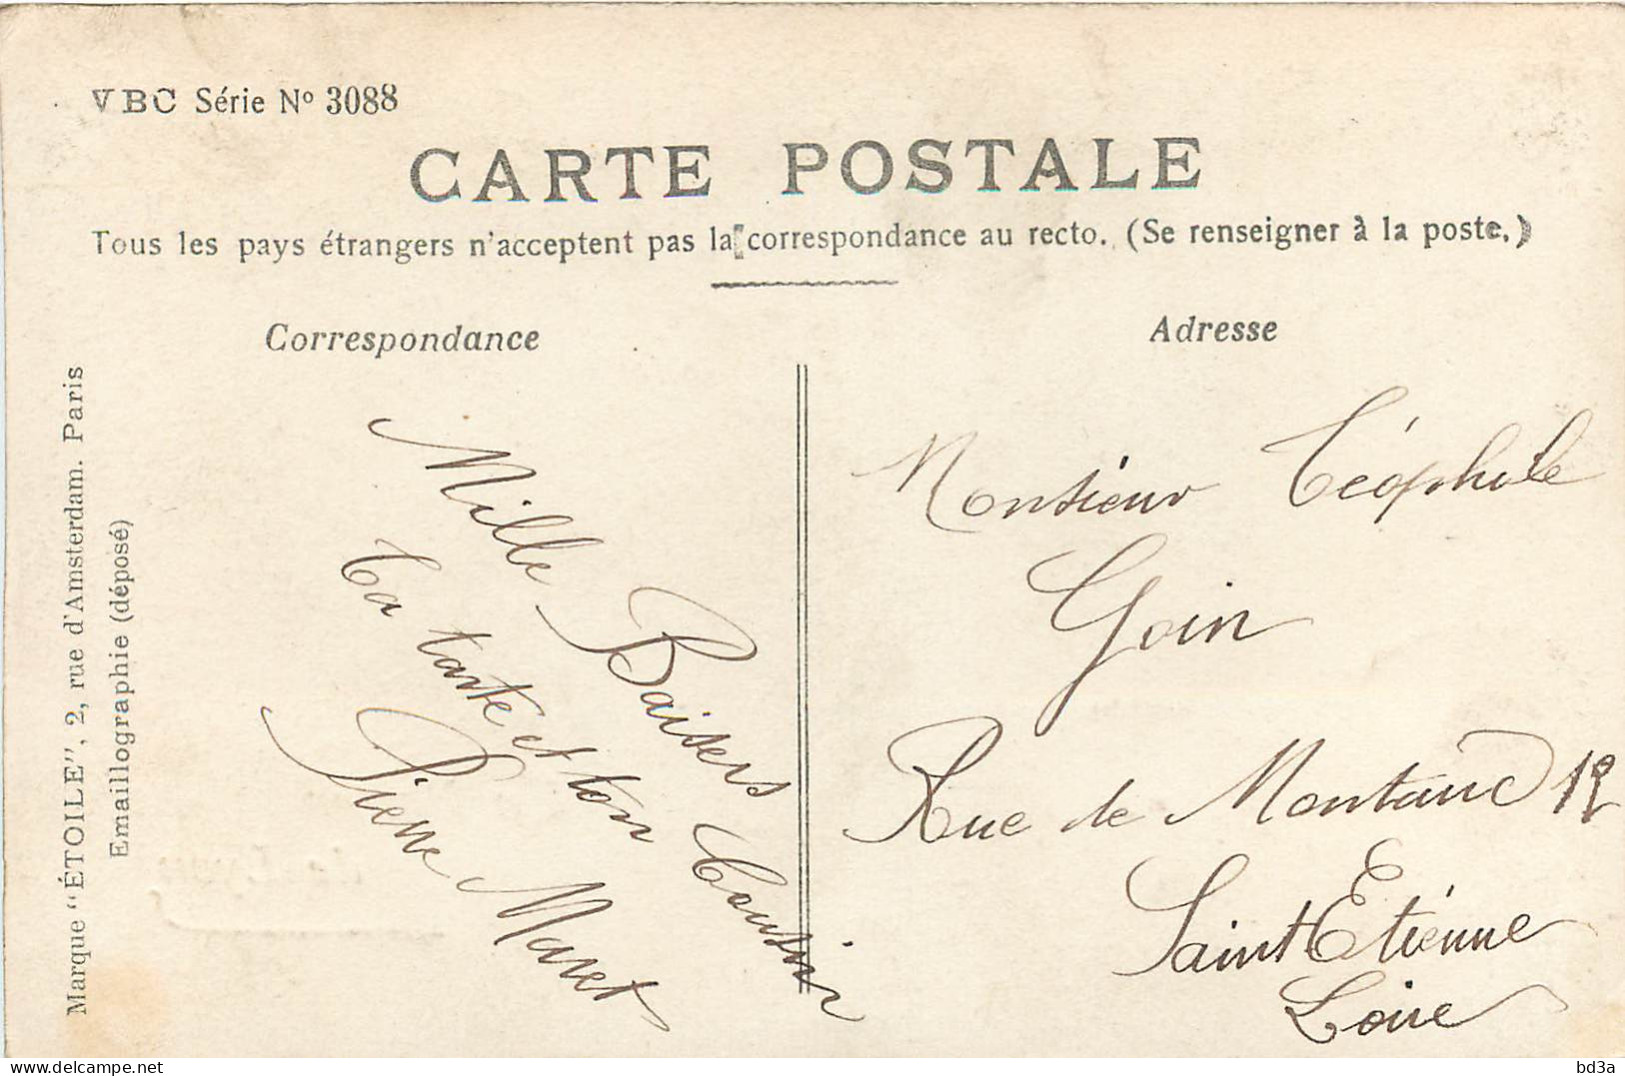 VBC Série Nº 3088
CARTE POSTALE
Tous les pays étrangers n'acceptent pas la correspondance au recto. (Se renseigner à la poste.)
Correspondance
Adresse
Marque "ÉTOILE", 2, rue d'Amsterdam. Paris
Emaillographie (déposé)
Mille Baisers
Ta tante et ton Cousin
Pierre Maret
Monsieur Téophile
Goin
Rue de Montaud 12
Saint Etienne
Loire
delcampe.net
bd3a